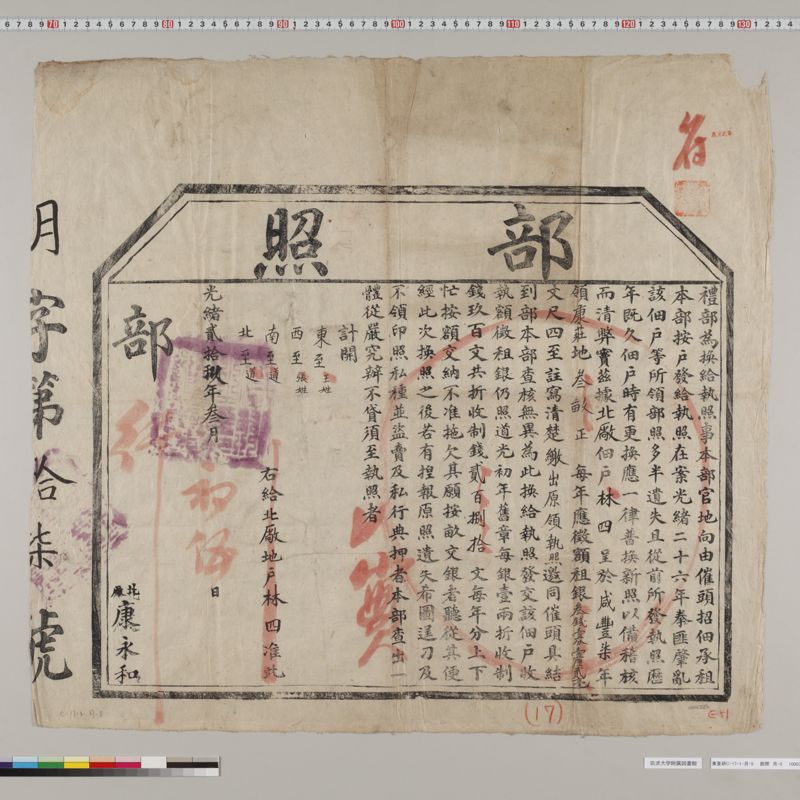 部照
禮部為換給執照事本部官地向由催頭招佃承租
本部按户發給執照在案光緒二十六年拳匪肇亂
該佃户等所領部照多半遺失且從前所發執照歷
年既久佃户時有更換應一律普換新照以備稽核
而清弊竇兹據北廠佃户林四呈於咸豐柒年
領康莊地叁畝正 每年應徵額租銀叁錢
丈尺四至註寫清楚繳出原領執照邀同催頭具結
到部本部查核無異為此換給執照發交該佃户收
執額徵租銀仍照道光初年舊章每銀壹兩折收制
錢玖百文共折收制錢貳百捌拾 文每年分上下
忙按額交納不准拖欠其願按畝交銀者聽從其便
經此次換照之後若有捏報原照遺失希圖逞刁及
不領印照私種並盜賣及私行典押者本部查出一
體從嚴究辦不貸須至執照者
計開
東至王姓
西至張姓
南至道
北至道
右給北廠地户林四准此
光緒貳拾玖年叁月初伍日
部
行
北廠康永和
月字第拾柒號
(17)
筑波大学附属図書館